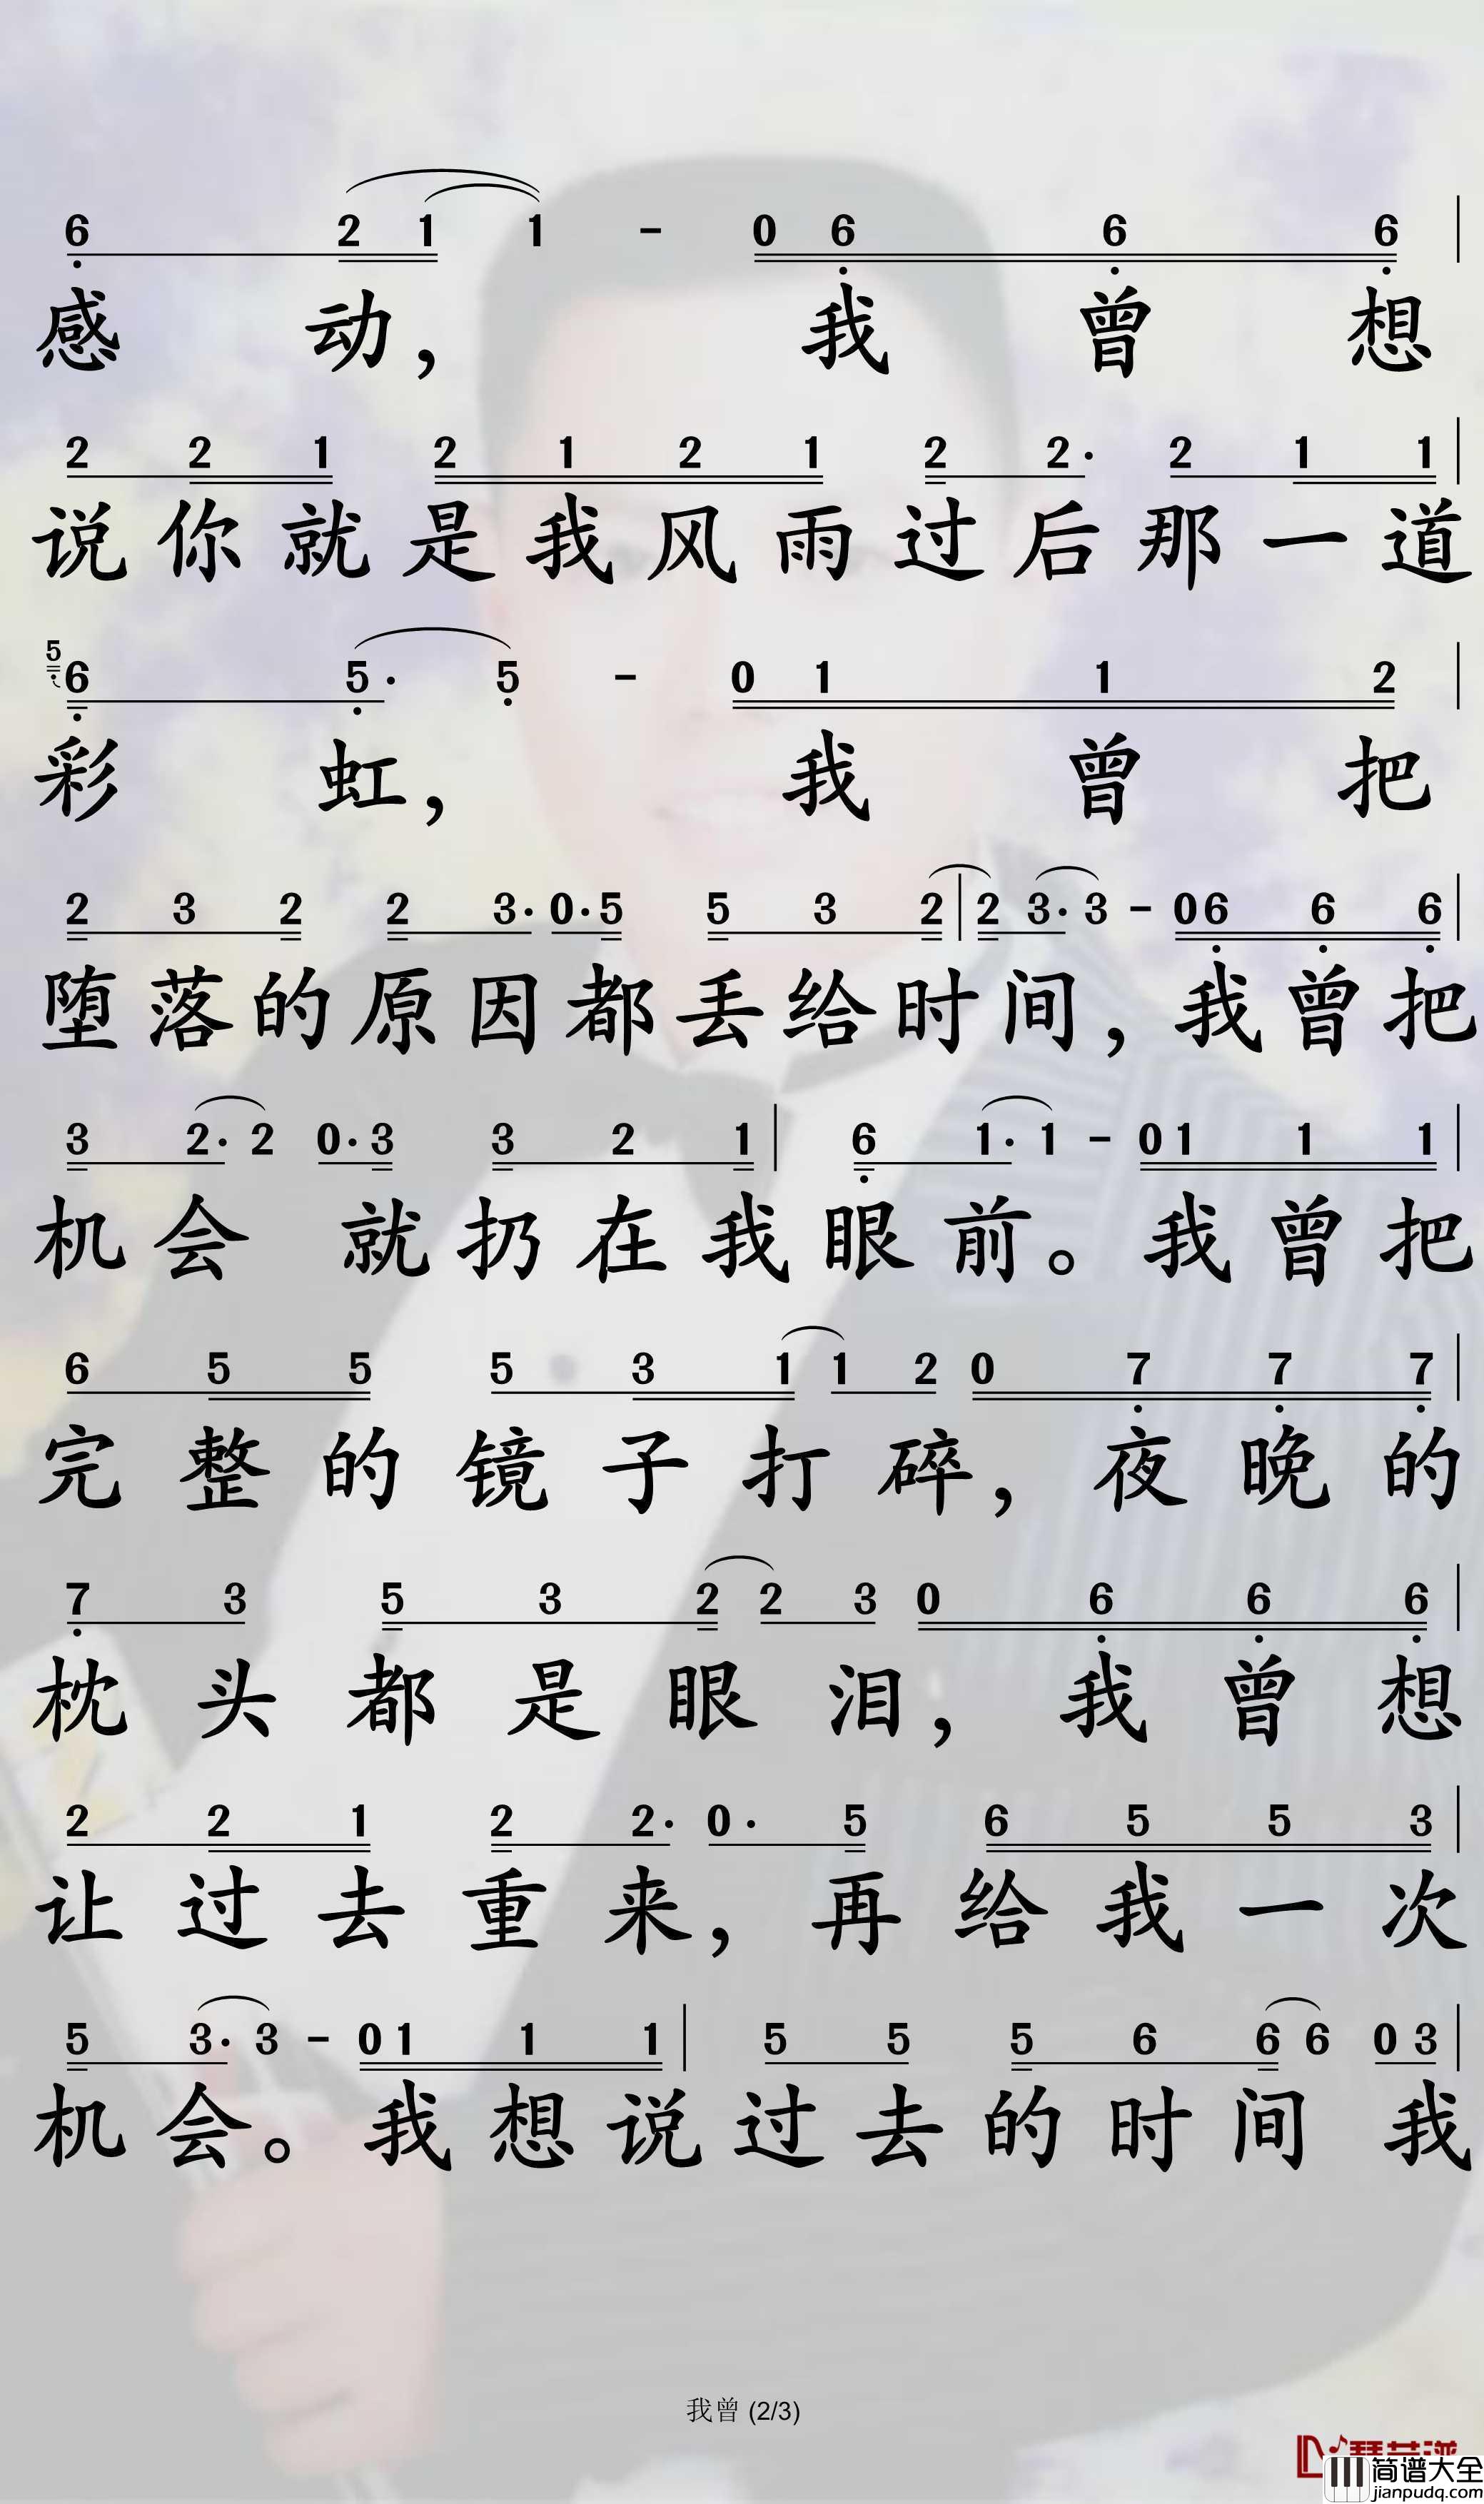 6 2 1 1 - 0 6 6 6
感动，我曾想
2 2 1 2 1 2 1 2 2· 2 1 1
说你就是我风雨过后那一道
5 6 5· 5 - 0 1 1 2
彩虹，我曾把
2 3 2 2 3· 0· 5 5 3 2 | 2 3· 3 - 0 6 6 6
堕落的原因都丢给时间，我曾把
3 2· 2 0· 3 3 2 1 | 6 1· 1 - 0 1 1 1
机会 就扔在我眼前。我曾把
6 5 5 5 3 1 1 2 0 7 7 7
完整的镜子打碎，夜晚的
7 3 5 3 2 2 3 0 6 6 6
枕头都是眼泪，我曾想
2 2 1 2 2· 0· 5 6 5 5 3
让过去重来，再给我一次
5 3· 3 - 0 1 1 1 | 5 5 5 6 6 6 0 3
机会。我想说过去的时间 我
我曾 (2/3)
简谱大全
jianpudq.com